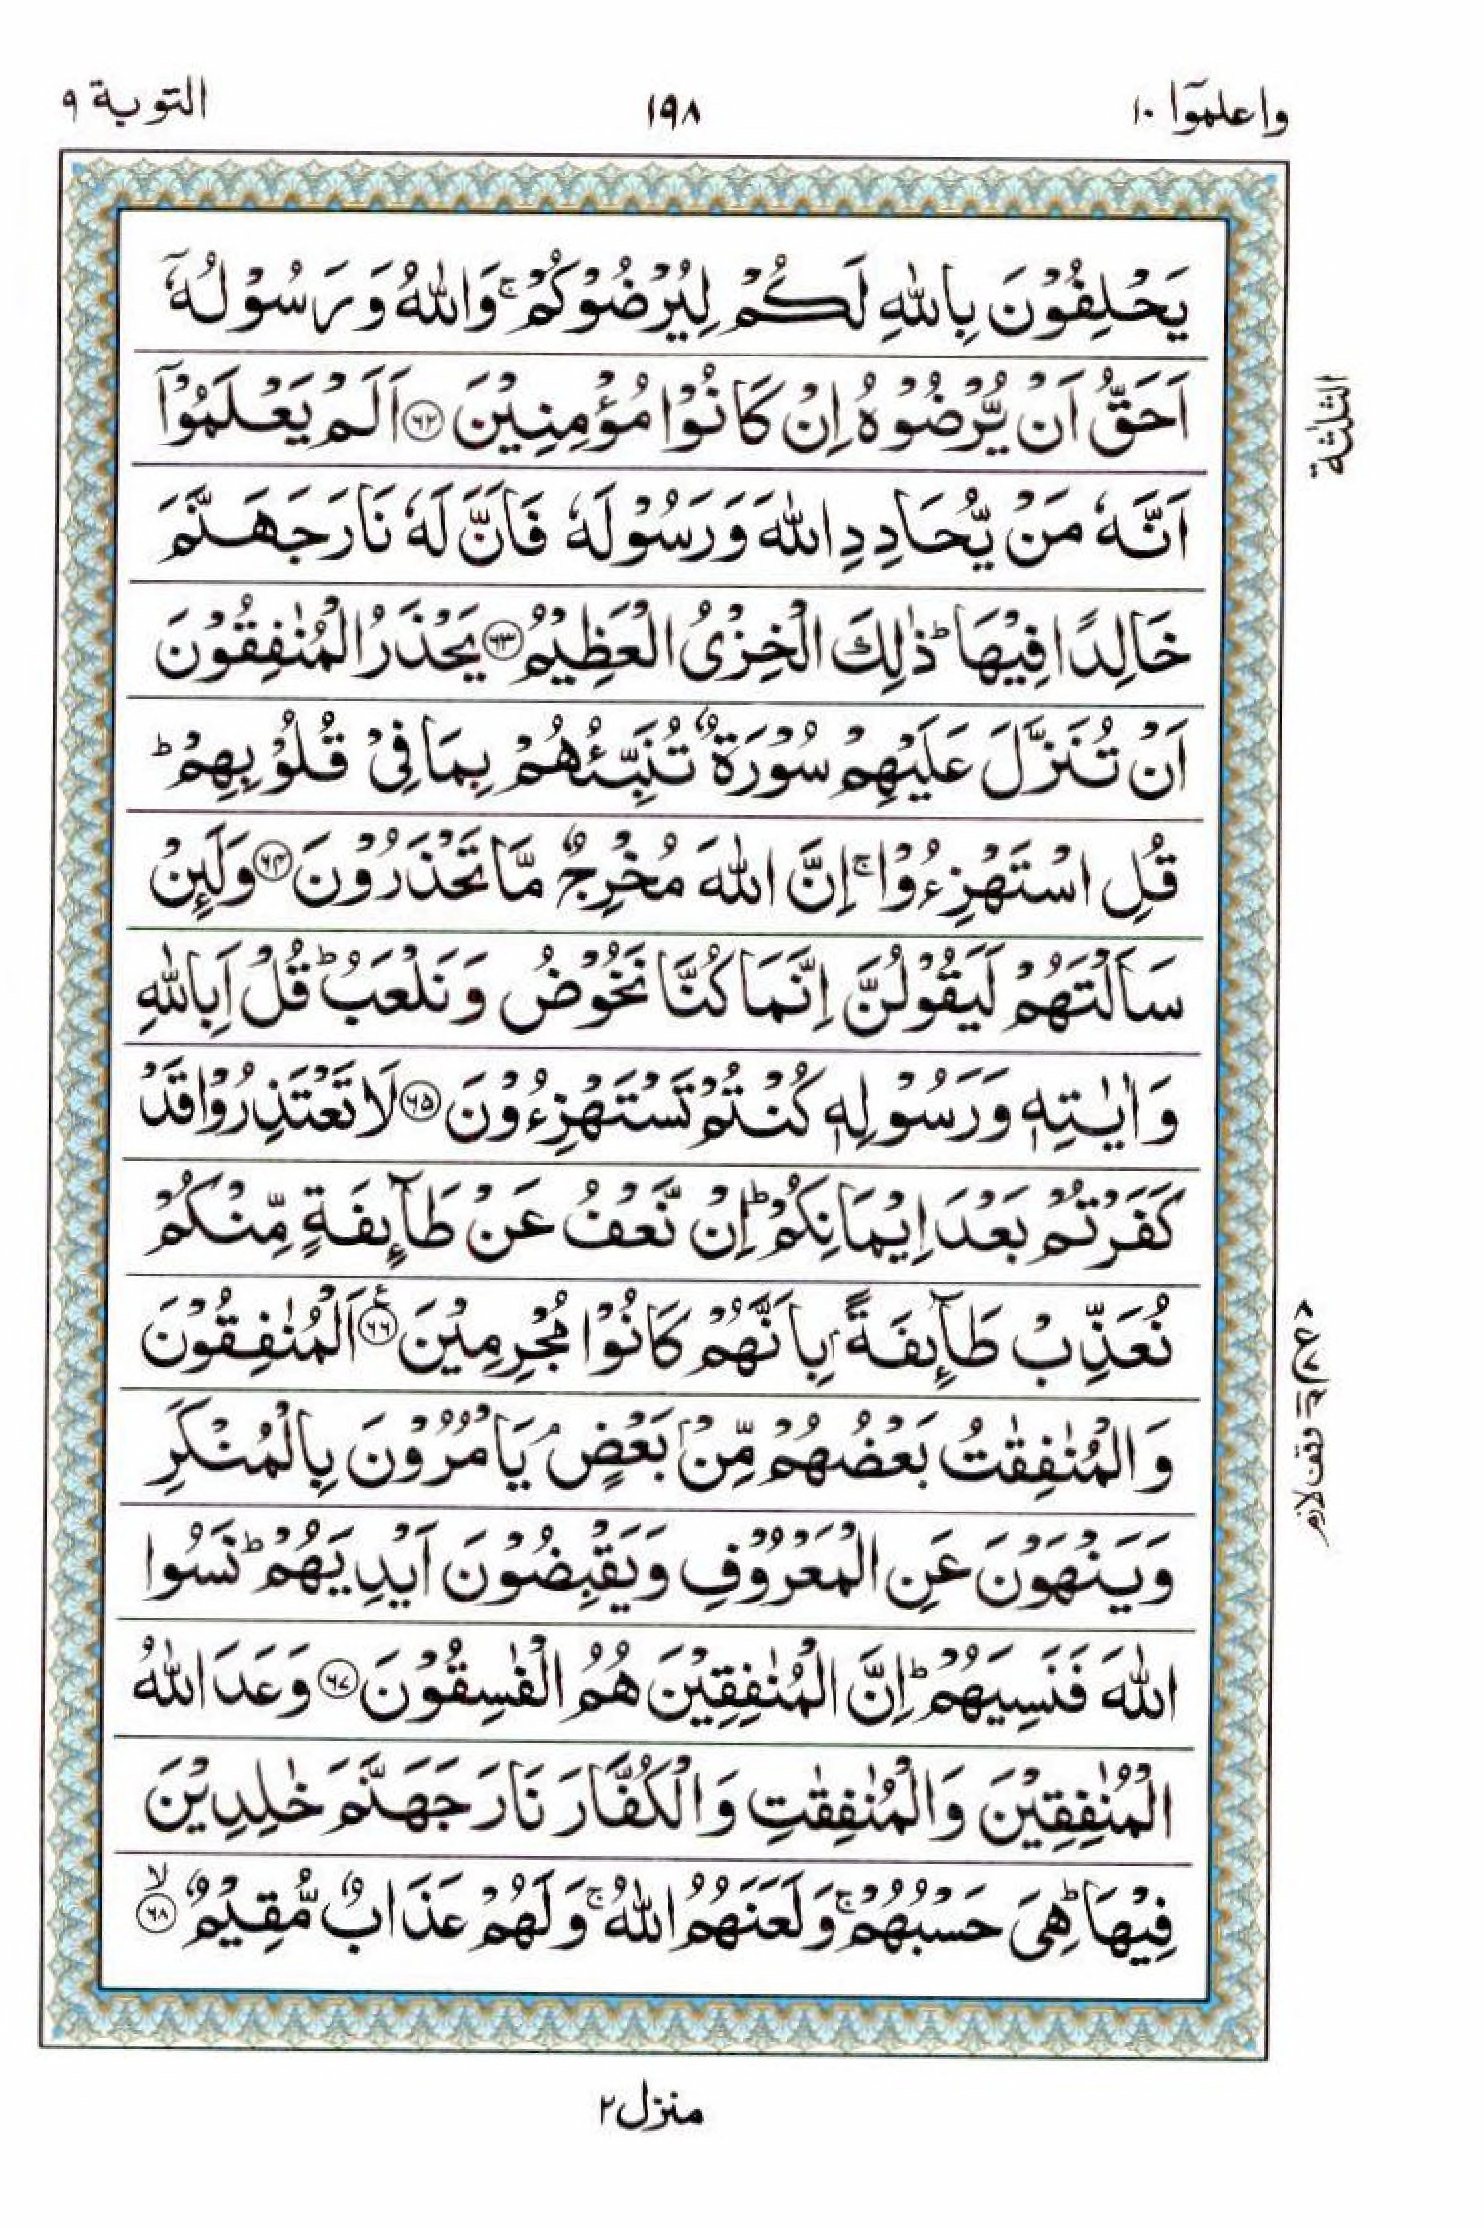 واعلموٓا ١٠
١٩٨
التوبة ٩
يَحْلِفُوْنَ بِاللّٰهِ لَكُمْ لِيُرْضُوْكُمْ ۚ وَاللّٰهُ وَرَسُوْلُهٗۤ
اَحَقُّ اَنْ يُّرْضُوْهُ اِنْ كَانُوْا مُؤْمِنِيْنَ ﴿۶۲﴾ اَلَمْ يَعْلَمُوْۤا
اَنَّهٗ مَنْ يُّحَادِدِ اللّٰهَ وَرَسُوْلَهٗ فَاَنَّ لَهٗ نَارَ جَهَنَّمَ
خَالِدًا فِيْهَا ؕ ذٰلِكَ الْخِزْىُ الْعَظِيْمُ ﴿۶۳﴾ يَحْذَرُ الْمُنٰفِقُوْنَ
اَنْ تُنَزَّلَ عَلَيْهِمْ سُوْرَةٌ تُنَبِّئُهُمْ بِمَا فِىْ قُلُوْبِهِمْ ؕ
قُلِ اسْتَهْزِءُوْا ۚ اِنَّ اللّٰهَ مُخْرِجٌ مَّا تَحْذَرُوْنَ ﴿۶۴﴾ وَلَئِنْ
سَاَلْتَهُمْ لَيَقُوْلُنَّ اِنَّمَا كُنَّا نَخُوْضُ وَنَلْعَبُ ؕ قُلْ اَبِاللّٰهِ
وَاٰيٰتِهٖ وَرَسُوْلِهٖ كُنْتُمْ تَسْتَهْزِءُوْنَ ﴿۶۵﴾ لَا تَعْتَذِرُوْا قَدْ
كَفَرْتُمْ بَعْدَ اِيْمَانِكُمْ ؕ اِنْ نَّعْفُ عَنْ طَآئِفَةٍ مِّنْكُمْ
نُعَذِّبْ طَآئِفَةًۢ بِاَنَّهُمْ كَانُوْا مُجْرِمِيْنَ ﴿۶۶﴾ اَلْمُنٰفِقُوْنَ
وَالْمُنٰفِقٰتُ بَعْضُهُمْ مِّنْۢ بَعْضٍ ۘ يَاْمُرُوْنَ بِالْمُنْكَرِ
وَيَنْهَوْنَ عَنِ الْمَعْرُوْفِ وَيَقْبِضُوْنَ اَيْدِيَهُمْ ؕ نَسُوا
اللّٰهَ فَنَسِيَهُمْ ؕ اِنَّ الْمُنٰفِقِيْنَ هُمُ الْفٰسِقُوْنَ ﴿۶۷﴾ وَعَدَ اللّٰهُ
الْمُنٰفِقِيْنَ وَالْمُنٰفِقٰتِ وَالْكُفَّارَ نَارَ جَهَنَّمَ خٰلِدِيْنَ
فِيْهَا ؕ هِىَ حَسْبُهُمْ ۚ وَلَعَنَهُمُ اللّٰهُ ۚ وَلَهُمْ عَذَابٌ مُّقِيْمٌ ﴿۶۸﴾ ۙ
الثلثة
وقف لازم
منزل ٢